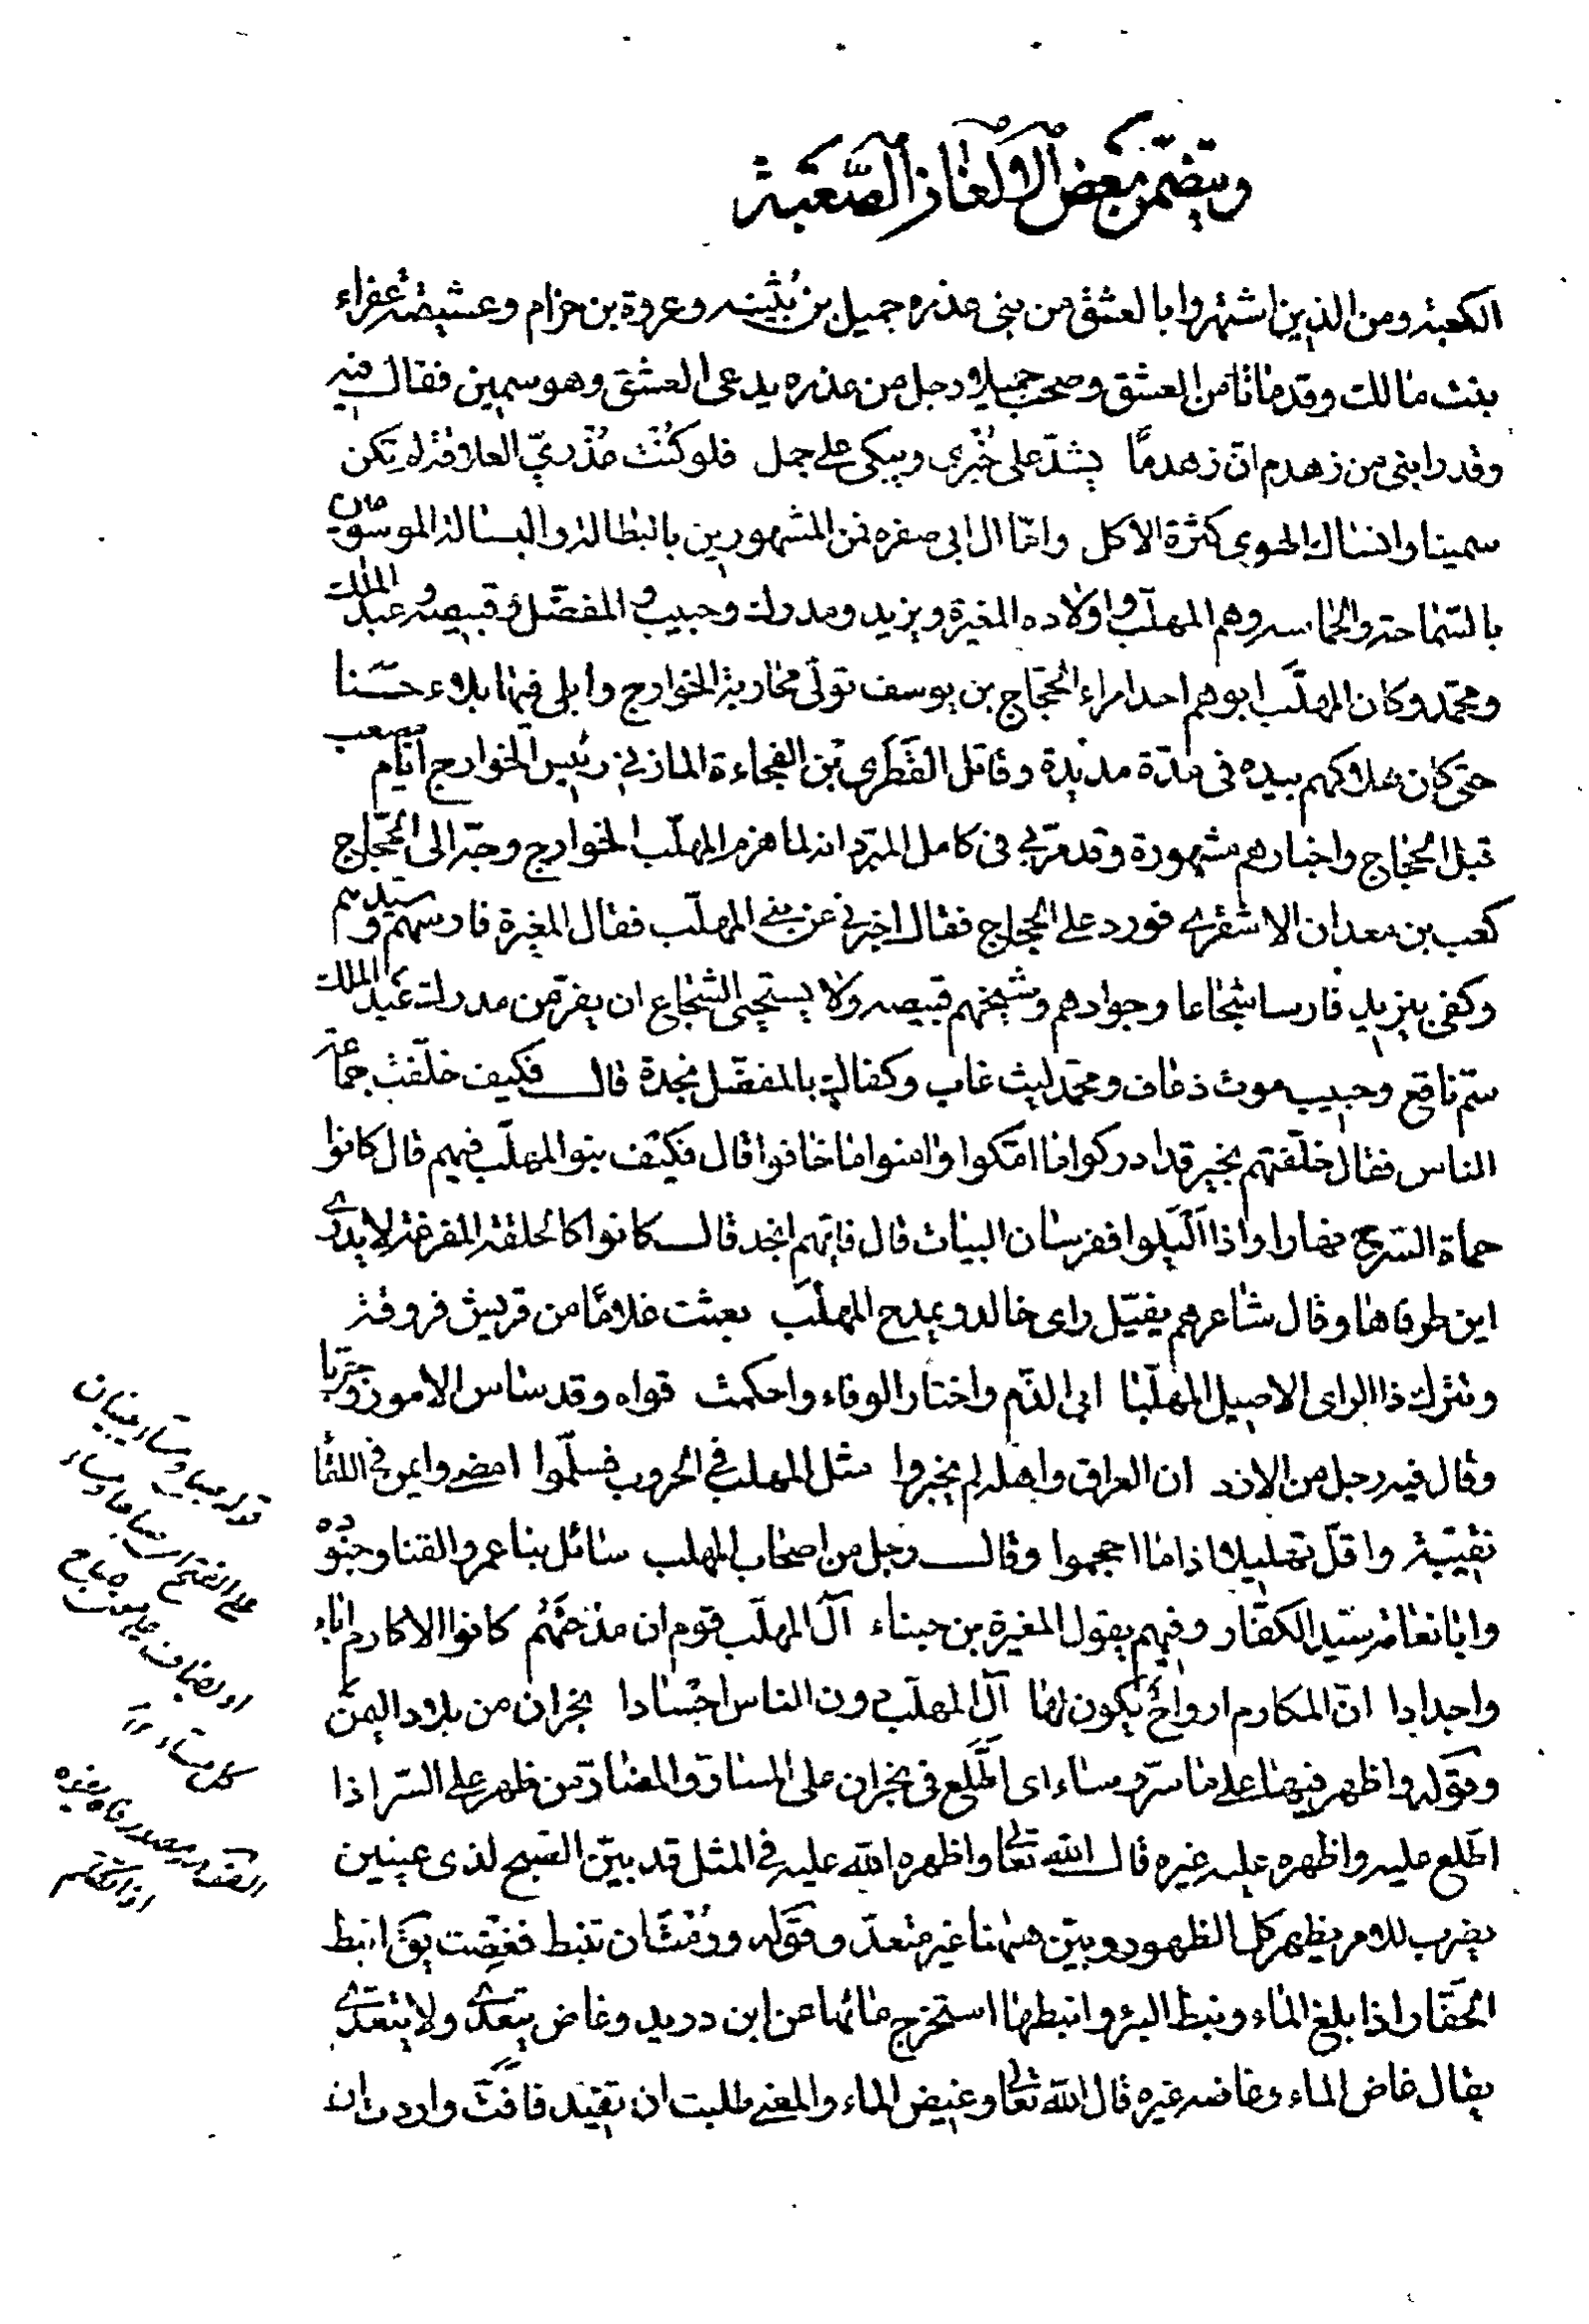 ويتضمن بعض الالغاز الصعبة
الكعبة ومن الذين اشتهروا بالعشق من بني عذره جميل بن بثينه وعروة بن حزام وعشيقته عفراء
بنت مالك وقد ماتا من العشق وصحب جميلا رجل من عذره يدعى العشق وهو سمين فقال فيه
وقد رابني من زهدم ان زهدمًا يشد على خبزي ويبكى على جمل فلو كنت عذريّ العلاقة لم تكن
سمينا وانساك الهوى كثرة الاكل وامّا ال ابى صفره فمن المشهورين بالبطالة والبسالة الموسومين
بالسّماحة والحماسه وهم المهلّب واولاده المغيرة ويزيد ومدرك وحبيب والمفضّل وقبيصه وعبد الملك
ومحمّد وكان المهلّب ابوهم احد امراء الحجّاج بن يوسف تولّى محاربة الخوارج وابلى فيها بلاء حسنا
حتى كان هلاكهم بيده فى مدّة مديدة وقاتل القطري بن الفجاءة المازني رئيس الخوارج ايّام مصعب
قبل الحجاج واخبارهم مشهورة وقد مرّ بي فى كامل المبرّد انه لما هزم المهلّب الخوارج وجّه الى الحجّاج
كعب بن معدان الاشقرى فورد على الحجاج فقال اخبرني عن بني المهلّب فقال المغيرة فارسهم وسيّدهم
وكفى بيزيد فارسا شجاعا وجوادهم وشيخهم قبيصه ولا يستحيى الشجاع ان يفرّ من مدرك وعبد الملك
سمّ ناقع وحبيب موت ذعاف ومحمّد ليث غاب وكفاك بالمفضّل نجدة قال فكيف خلّفت جماعة
الناس فقال خلّفتهم بخير قد ادركوا ما امّلوا وامنوا ما خافوا قال فكيف بنو المهلّب فيهم قال كانوا
حماة السّرح نهارا واذا الّيلوا ففرسان البيات قال فايّهم انجد قال كانوا كالحلقة المفرغة لا يدرى
اين طرفاها وقال شاعرهم يفيّل راى خالد ويمدح المهلّب بعثت غلامًا من قريش فروقة
وتترك ذا الراى الاصيل المهلّبا ابى الذّم واختار الوفاء واحكمت قواه وقد ساس الامور وجرّبا
وقال فيه رجل من الازد ان العراق واهله لم يخبروا مثل المهلب في الحروب فسلّموا امضى وايمن في اللقا
نقيبة واقلّ تهليلا اذا ما احجموا وقال رجل من اصحاب المهلب سائل بنا عمرو القنا وجنوده
وابا نعامة سيّد الكفّار وفيهم يقول المغيرة بن حبناء آل المهلّب قوم ان مدحتهم كانوا الاكارم اباء
واجدادا انّ المكارم ارواح يكون لها آل المهلّب دون الناس اجسادا نجران من بلاد اليمن
وقوله واظهر فيها على ما سرّ وساء اى اطّلع فى نجران على المسارّ والمضارّ من ظهر على السّر اذا
اطّلع عليه واظهره عليه غيره قال الله تعالى واظهره الله عليه في المثل قد بيّن الصبح لذى عينين
يضرب للامر يظهر كل الظهور وبيّن ههنا غير متعدّ وقوله ورمت ان تنبط فغضت يق انبط
الحفّار اذا بلغ الماء ونبط البئر وانبطها استخرج مائها عن ابن دريد وغاض يتعدّى ولا يتعدّى
يقال غاض الماء وغاضه غيره قال الله تعالى وغيض الماء والمعنى طلبت ان تفيد فافت واردت ان